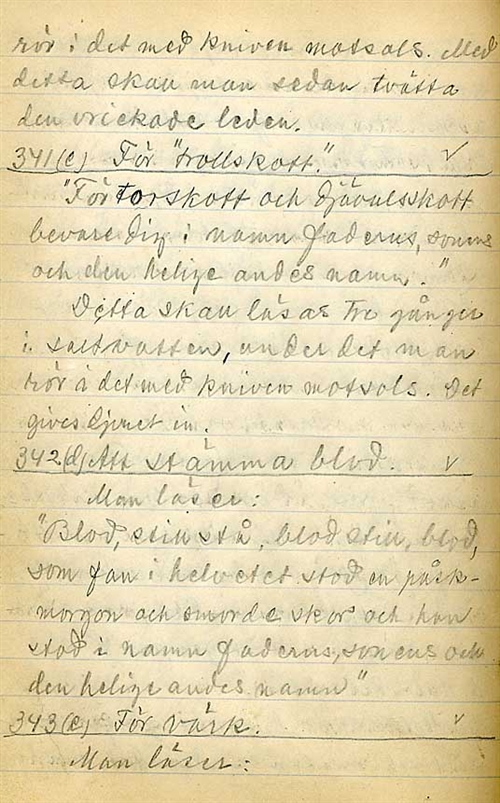 rör i det med kniven motsols. Med
detta skall man sedan tvätta
den vrickade leden.
341(c) För "trollskott". ✓
"För torskott och djävulsskott
bevare dig i namn faderns, sonens
och den helige andes namn."
Detta skall läsas tre gånger
i saltvatten, under det man
rör i det med kniven motsols. Det
gives djuret in.
342(d) Att stämma blod. ✓
Man läser:
"Blod, still stå, blod still, blod,
som fan i helvetet stod en påsk-
morgon och smorde skor och han
stod i namn faderns, sonens och
den helige andes namn"
343(e) För värk. ✓
Man läser: